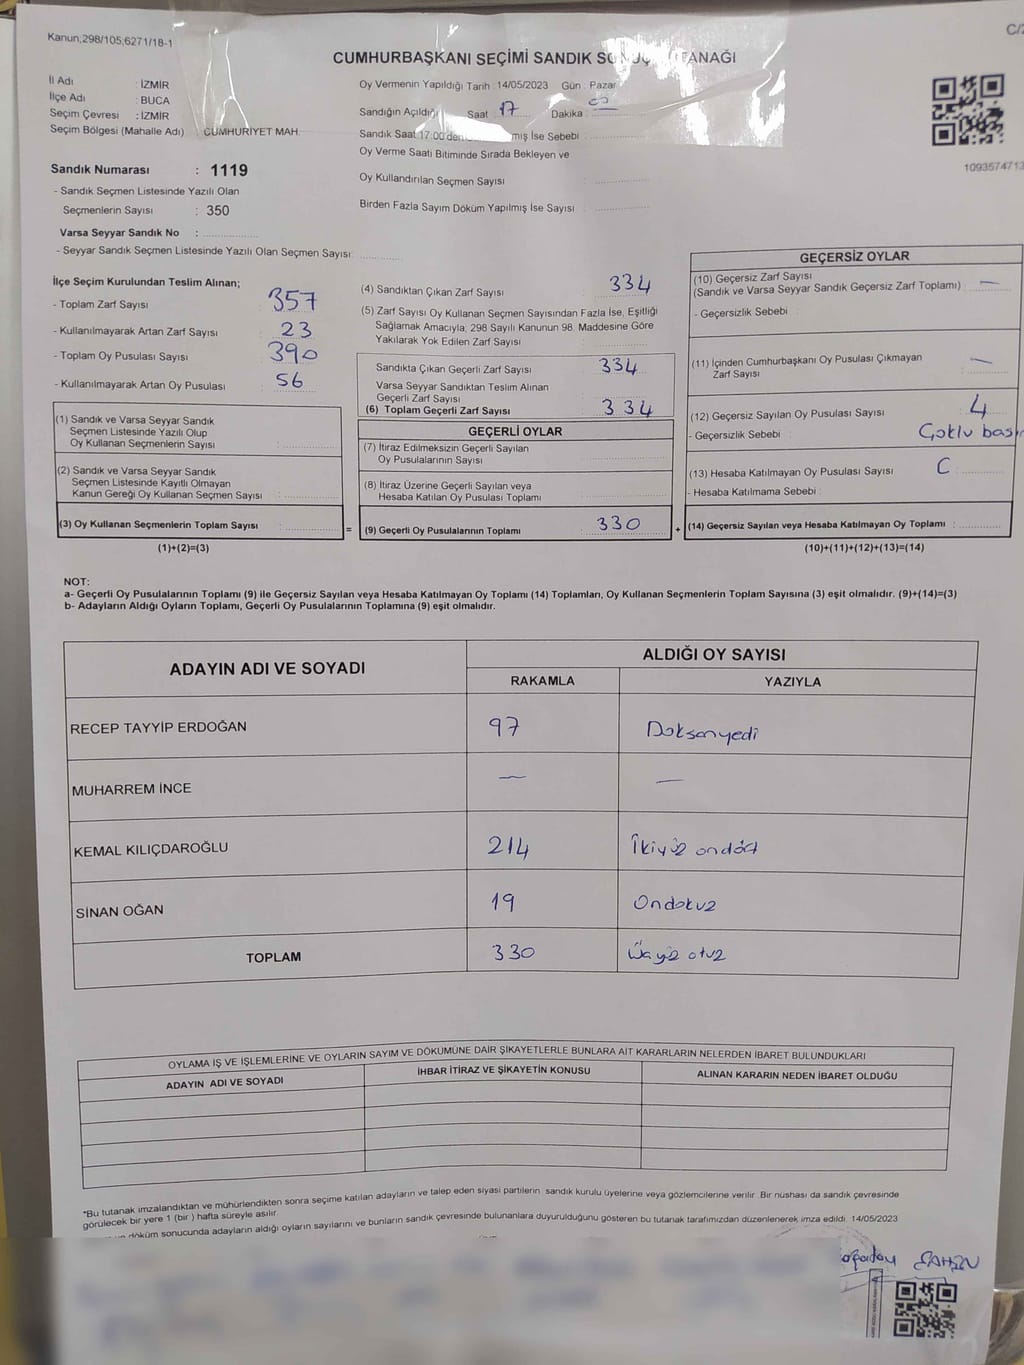 Kanun;298/105;6271/18-1
C/2
CUMHURBAŞKANI SEÇİMİ SANDIK SONUÇ TUTANAĞI
İl Adı : İZMİR
İlçe Adı : BUCA
Seçim Çevresi : İZMİR
Seçim Bölgesi (Mahalle Adı) : CUMHURİYET MAH.
Oy Vermenin Yapıldığı Tarih : 14/05/2023 Gün : Pazar
Sandığın Açıldığı Saat : 17 Dakika :
Sandık Saat 17:00'den mış İse Sebebi :
Oy Verme Saati Bitiminde Sırada Bekleyen ve
Oy Kullandırılan Seçmen Sayısı :
Birden Fazla Sayım Döküm Yapılmış İse Sayısı :
1093574713
Sandık Numarası : 1119
- Sandık Seçmen Listesinde Yazılı Olan
Seçmenlerin Sayısı : 350
Varsa Seyyar Sandık No :
- Seyyar Sandık Seçmen Listesinde Yazılı Olan Seçmen Sayısı:
İlçe Seçim Kurulundan Teslim Alınan;
- Toplam Zarf Sayısı : 357
- Kullanılmayarak Artan Zarf Sayısı : 23
- Toplam Oy Pusulası Sayısı : 390
- Kullanılmayarak Artan Oy Pusulası : 56
(1) Sandık ve Varsa Seyyar Sandık
Seçmen Listesinde Yazılı Olup
Oy Kullanan Seçmenlerin Sayısı :
(2) Sandık ve Varsa Seyyar Sandık
Seçmen Listesinde Kayıtlı Olmayan
Kanun Gereği Oy Kullanan Seçmen Sayısı :
(3) Oy Kullanan Seçmenlerin Toplam Sayısı :
(1)+(2)=(3)
(4) Sandıktan Çıkan Zarf Sayısı : 334
(5) Zarf Sayısı Oy Kullanan Seçmen Sayısından Fazla İse, Eşitliği
Sağlamak Amacıyla; 298 Sayılı Kanunun 98. Maddesine Göre
Yakılarak Yok Edilen Zarf Sayısı :
Sandıkta Çıkan Geçerli Zarf Sayısı : 334
Varsa Seyyar Sandıktan Teslim Alınan
Geçerli Zarf Sayısı :
(6) Toplam Geçerli Zarf Sayısı : 334
GEÇERLİ OYLAR
(7) İtiraz Edilmeksizin Geçerli Sayılan
Oy Pusulalarının Sayısı :
(8) İtiraz Üzerine Geçerli Sayılan veya
Hesaba Katılan Oy Pusulası Toplamı :
= (9) Geçerli Oy Pusulalarının Toplamı : 330
GEÇERSİZ OYLAR
(10) Geçersiz Zarf Sayısı
(Sandık ve Varsa Seyyar Sandık Geçersiz Zarf Toplamı) : —
- Geçersizlik Sebebi :
(11) İçinden Cumhurbaşkanı Oy Pusulası Çıkmayan
Zarf Sayısı : —
(12) Geçersiz Sayılan Oy Pusulası Sayısı : 4
- Geçersizlik Sebebi : Çoklu bas
(13) Hesaba Katılmayan Oy Pusulası Sayısı :
- Hesaba Katılmama Sebebi :
+ (14) Geçersiz Sayılan veya Hesaba Katılmayan Oy Toplamı :
(10)+(11)+(12)+(13)=(14)
NOT:
a- Geçerli Oy Pusulalarının Toplamı (9) ile Geçersiz Sayılan veya Hesaba Katılmayan Oy Toplamı (14) Toplamları, Oy Kullanan Seçmenlerin Toplam Sayısına (3) eşit olmalıdır. (9)+(14)=(3)
b- Adayların Aldığı Oyların Toplamı, Geçerli Oy Pusulalarının Toplamına (9) eşit olmalıdır.
ADAYIN ADI VE SOYADI
ALDIĞI OY SAYISI
RAKAMLA YAZIYLA
RECEP TAYYİP ERDOĞAN 97 Doksanyedi
MUHARREM İNCE — —
KEMAL KILIÇDAROĞLU 214 İkiyüz ondört
SİNAN OĞAN 19 Ondokuz
TOPLAM 330 Üçyüz otuz
OYLAMA İŞ VE İŞLEMLERİNE VE OYLARIN SAYIM VE DÖKÜMÜNE DAİR ŞİKAYETLERLE BUNLARA AİT KARARLARIN NELERDEN İBARET BULUNDUKLARI
ADAYIN ADI VE SOYADI İHBAR İTİRAZ VE ŞİKAYETİN KONUSU ALINAN KARARIN NEDEN İBARET OLDUĞU
*Bu tutanak imzalandıktan ve mühürlendikten sonra seçime katılan adayların ve talep eden siyasi partilerin sandık kurulu üyelerine veya gözlemcilerine verilir. Bir nüshası da sandık çevresinde
görülecek bir yere 1 (bir ) hafta süreyle asılır.
döküm sonucunda adayların aldığı oyların sayılarını ve bunların sandık çevresinde bulunanlara duyurulduğunu gösteren bu tutanak tarafımızdan düzenlenerek imza edildi. 14/05/2023
ŞAHİN